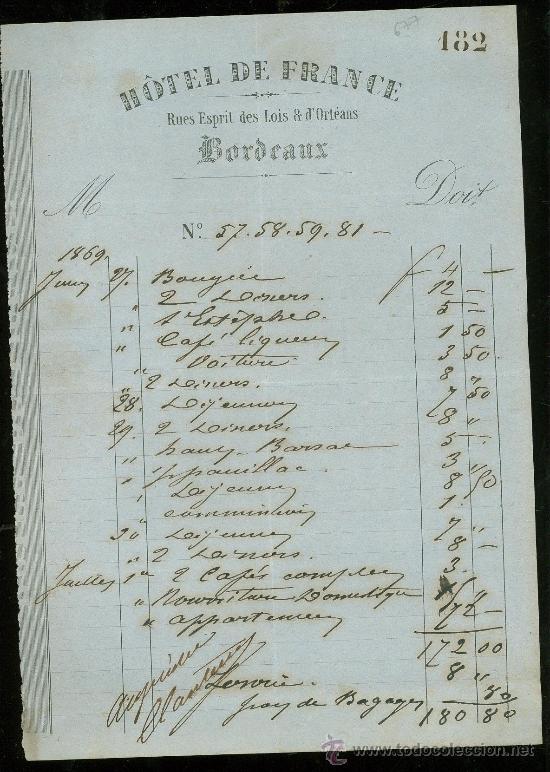 677
182
HÔTEL DE FRANCE
Rues Esprit des Lois & d'Orléans
Bordeaux
M Doit
Nº 57.58.59.81 —
1869
27. Bougies f 4 —
" 2 Diners. 12 —
" St Estèphe 5 —
" Café liqueur 1 50
Voiture 3 50
" 2 Diners. 8 "
28. Dejeuner 7 50
29. 2 Diners. 8 "
" haut Barsac 5 —
" pauillac. 3 "
" Dejeuner 8 50
commission 1
30 Dejeuner 7 "
" 2 Diners. 8 —
Juillet 1er 2 Cafés complets 3.
" Nourriture Domestique
" appartement 172 —
172 00
Service 8 "
de Bagages 80
180 80
todocoleccion
www.todocoleccion.net